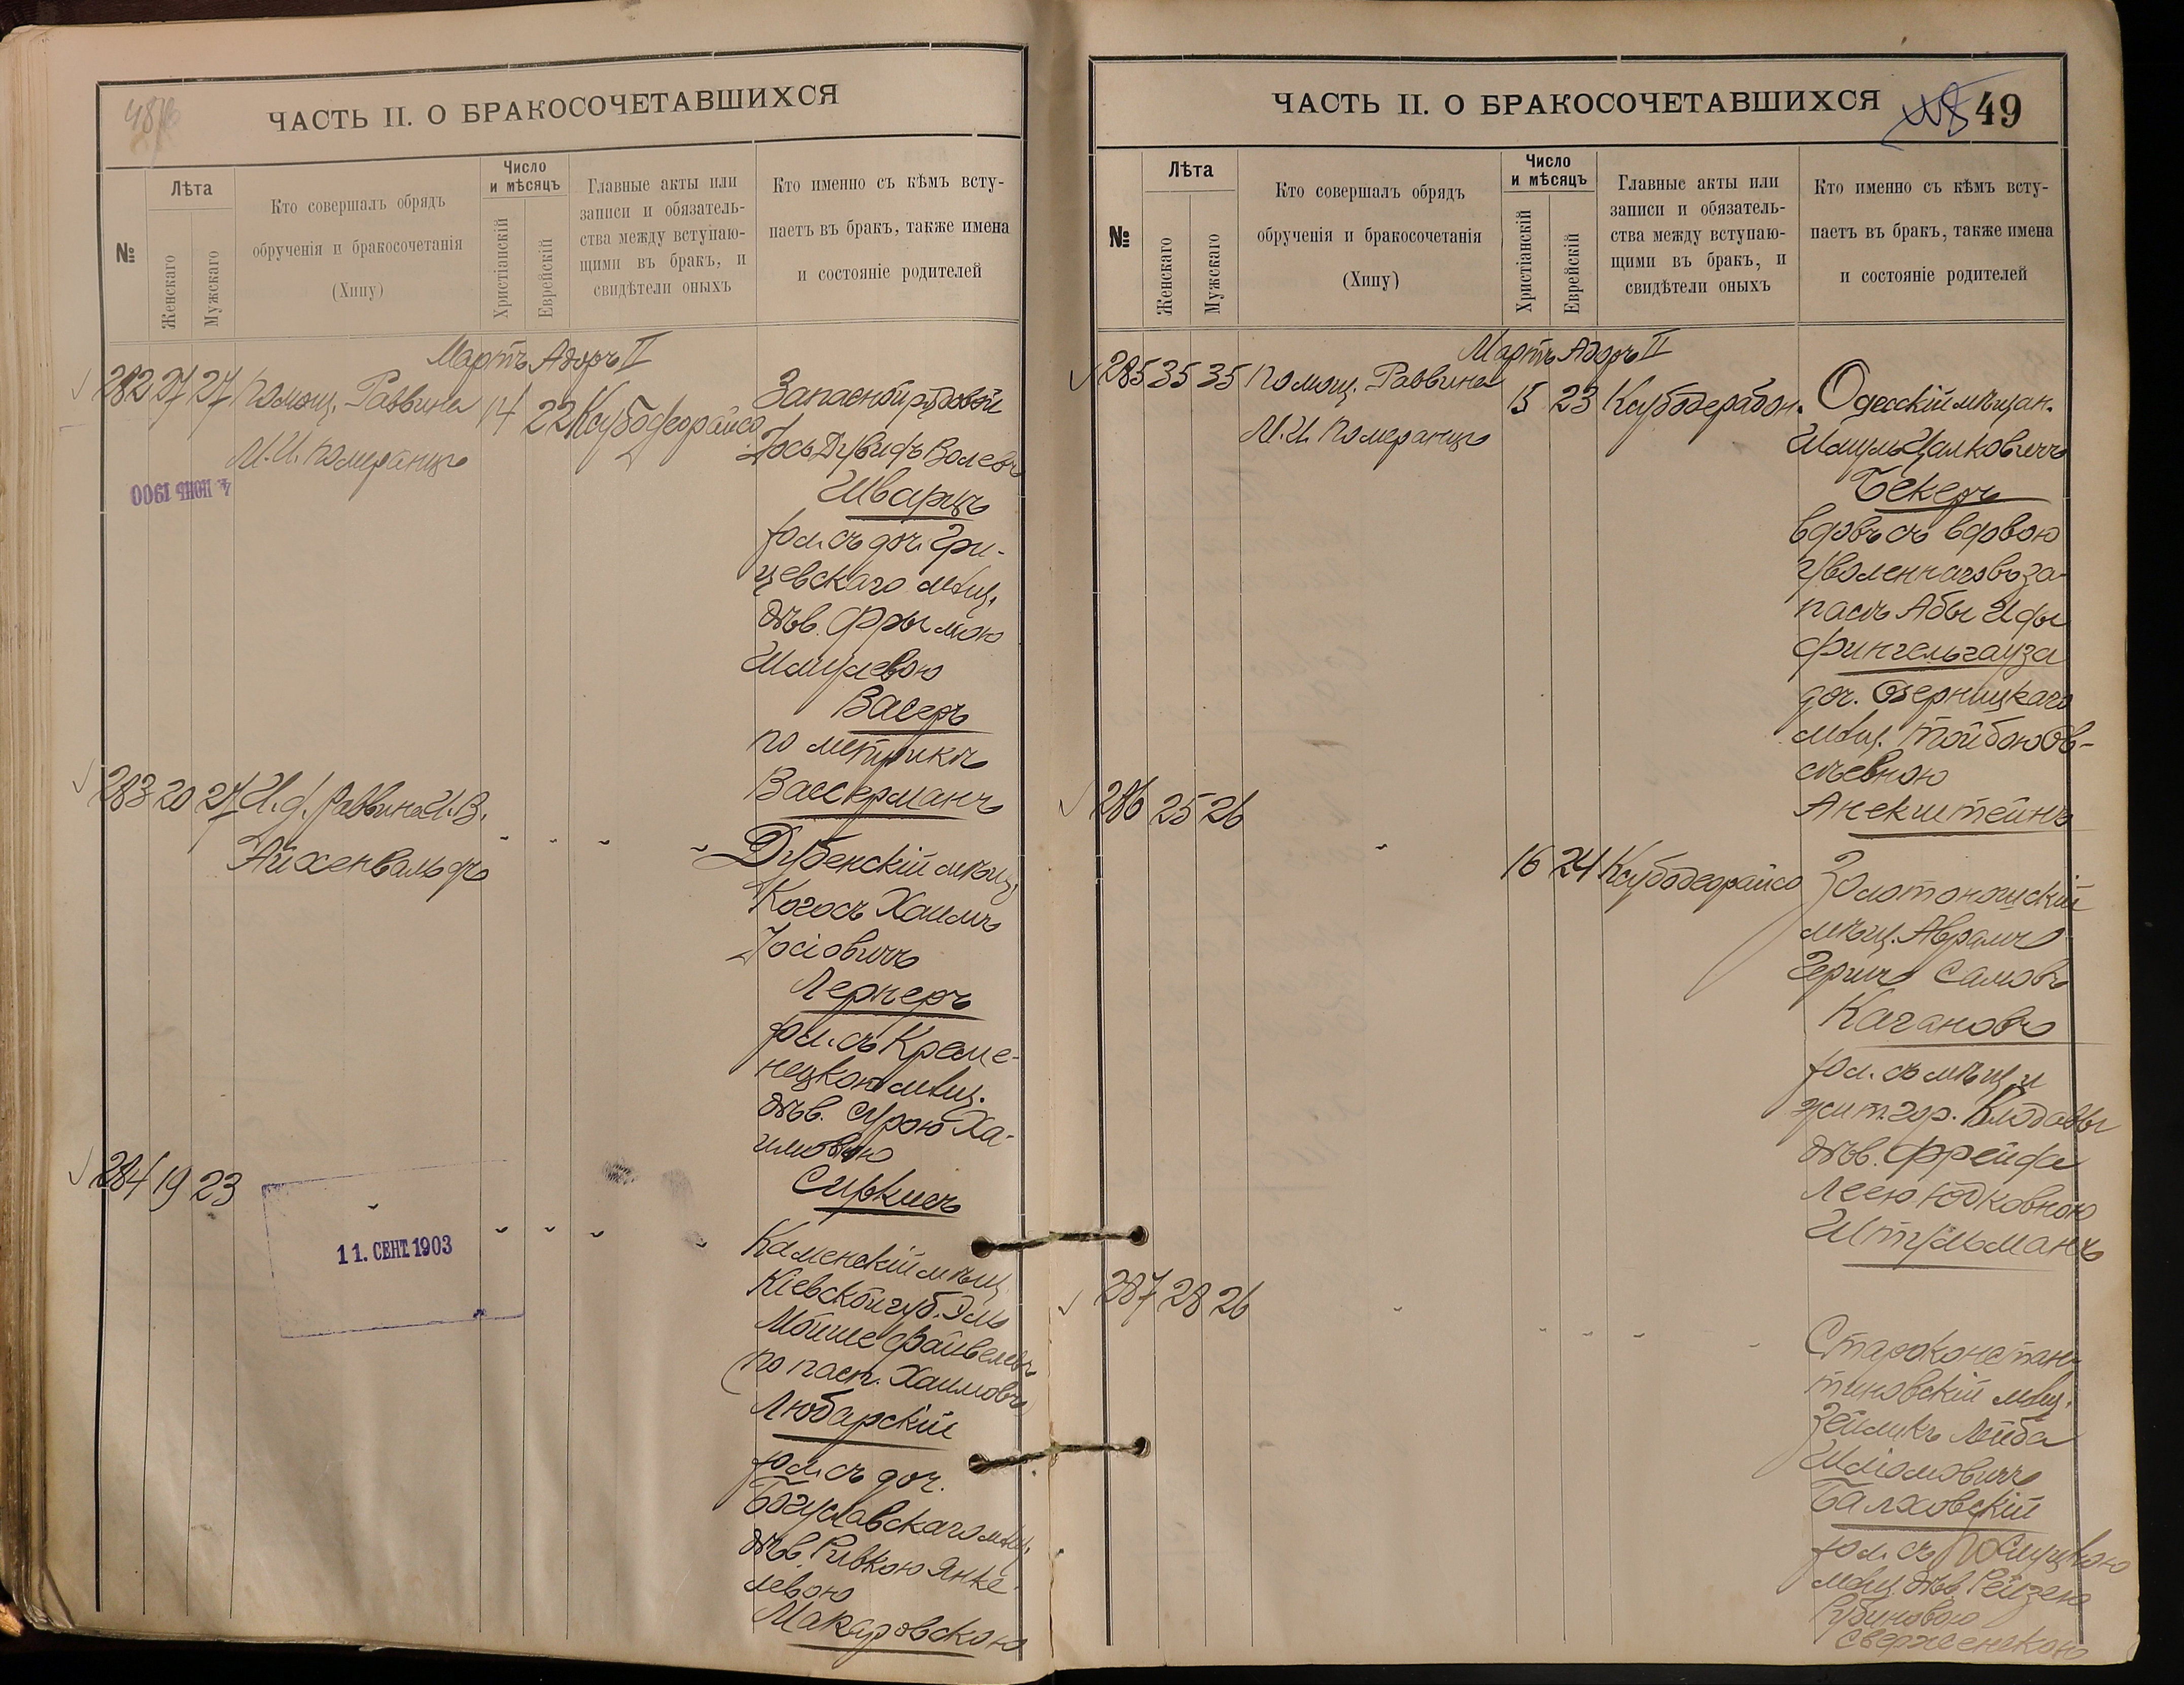 48
ЧАСТЬ II. О БРАКОСОЧЕТАВШИХСЯ
№
Лѣта
Женскаго
Мужскаго
Кто совершалъ обрядъ
обрученія и бракосочетанія
(Хипу)
Число
и мѣсяцъ
Христіанскій
Еврейскій
Главные акты или
записи и обязатель-
ства между вступаю-
щими въ бракъ, и
свидѣтели оныхъ
Кто именно съ кѣмъ всту-
паетъ въ бракъ, также имена
и состояніе родителей
Мартъ Адаръ II
282 27 27 Помощ. Раввина
М. И. Померанцъ
14 22 Ксубодеорайсо
4 ІЮНЯ 1900
Запасной рядовой
Іось Дувидъ Волевъ
Шварцъ
хол. съ доч. Гри-
цевскаго мѣщ.
дѣв. Фрымою
Шмулевою
Васеръ
по метрикѣ
Вассерманъ
283 20 27 И. д. Раввина И. В.
Айхенвальдъ
Дубенскій мѣщ.
Когосъ Хаимъ
Іосіовичъ
Лернеръ
хол. съ Креме-
нецкою мѣщ.
дѣв. Сурою Ха-
имовою
Сиркисъ
284 19 23
11. СЕНТ. 1903
Каменскій мѣщ.
Кіевской губ. Эль
Мойше Файвелевъ
(по пасп. Хаимовъ
Любарскій
хол. съ доч.
Богуславскаго мѣщ.
дѣв. Ривкою Янке-
левою
Макаровскою
ЧАСТЬ II. О БРАКОСОЧЕТАВШИХСЯ
49
№
Лѣта
Женскаго
Мужскаго
Кто совершалъ обрядъ
обрученія и бракосочетанія
(Хипу)
Число
и мѣсяцъ
Христіанскій
Еврейскій
Главные акты или
записи и обязатель-
ства между вступаю-
щими въ бракъ, и
свидѣтели оныхъ
Кто именно съ кѣмъ всту-
паетъ въ бракъ, также имена
и состояніе родителей
Мартъ Адаръ II
285 35 35 Помощ. Раввина
М. И. Померанцъ
15 23
Одесскій мѣщан.
Шмуль Цалковичъ
Бекеръ
вдовъ съ вдовою
уволеннаго въ за-
пасъ Абы Иды
Фингельгауза
доч. Озерницкаго
мѣщ. Тойбою Ов-
сѣевною
Анекштейнъ
286 25 26
16 24 Ксубодеорайсо
Золотоношскій
мѣщ. Аврамъ
Гершъ Самовъ
Кагановъ
хол. съ мѣщ. и
жит. гор. Влодавы
дѣв. Фрейда
Леею Юдковною
Штульманъ
287 28 26
Староконстан-
тиновскій мѣщ.
Зейликъ Лейба
Шліомовичъ
Балховскій
хол. съ Слуцкою
мѣщ. дѣв. Рейзею
Рубиновою
Сверженскою